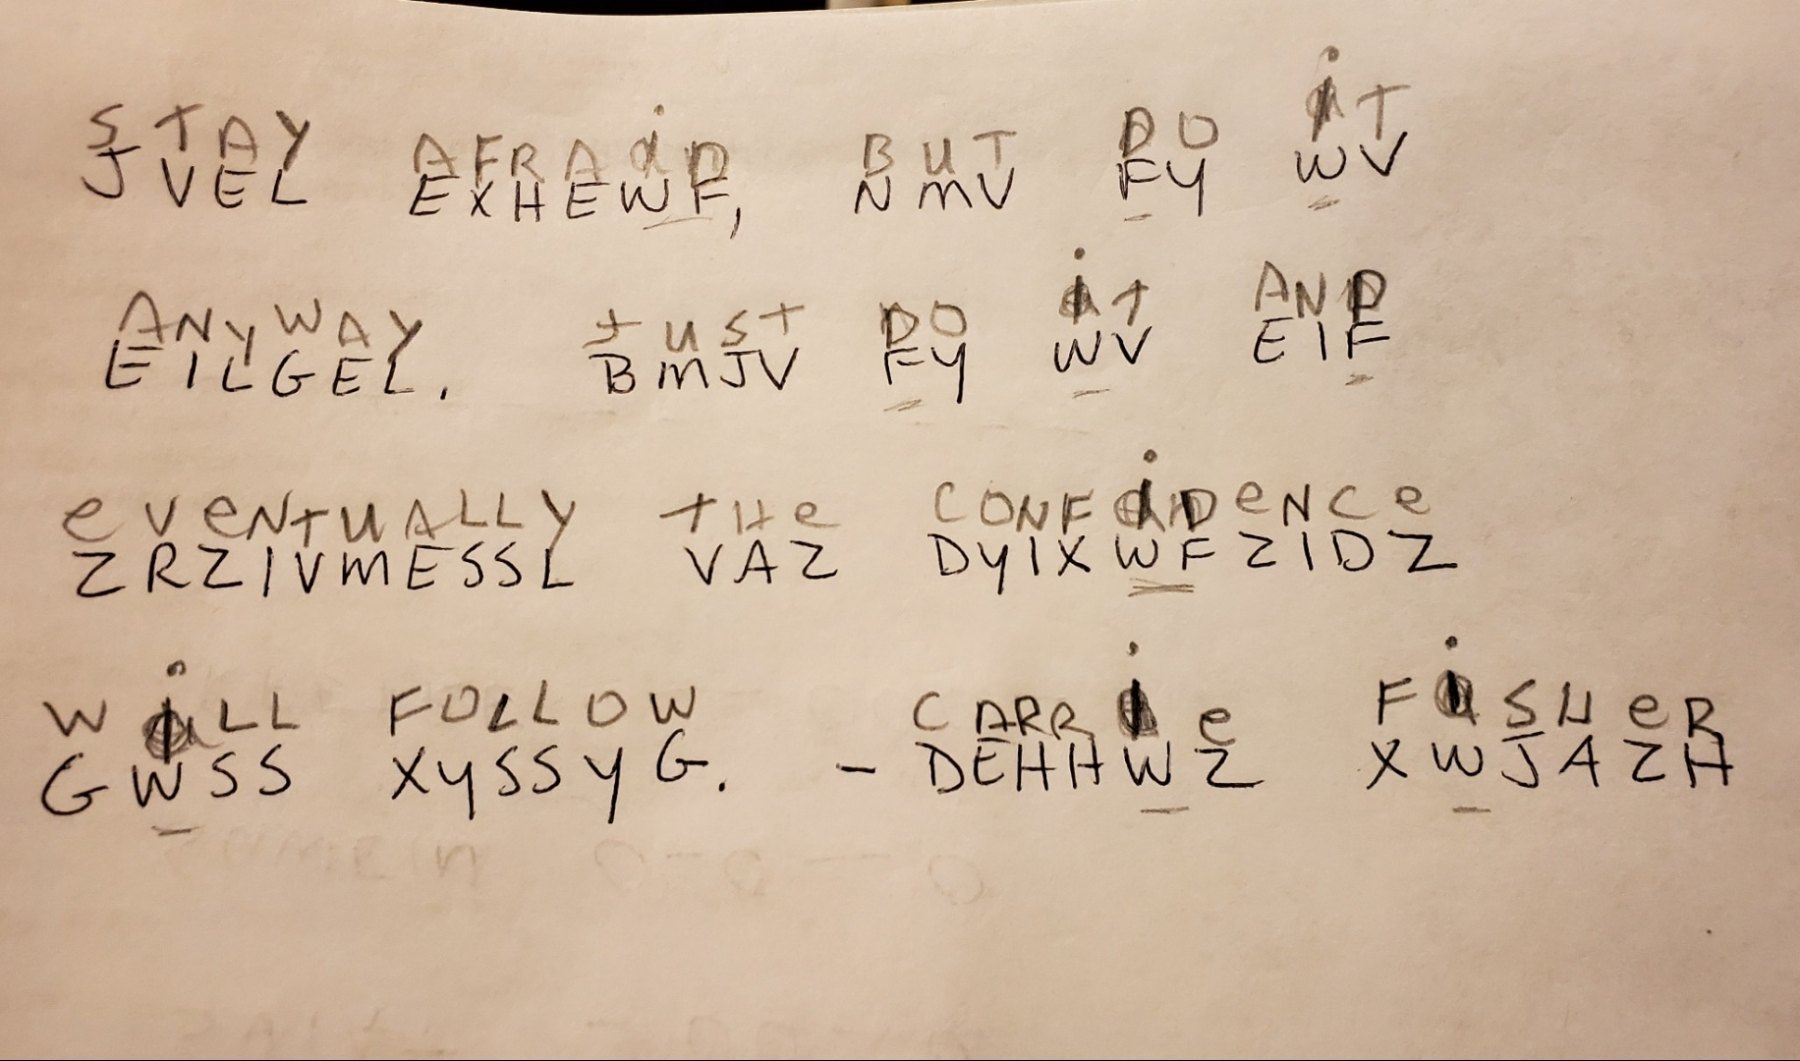 STAY AFRAiD BUT DO iT
JVEL EXHEWF, NMV FY WV
ANYWAY JUST DO iT AND
EILGEL. BMJV FY WV EIF
eVeNTUALLY THe CONFiDeNCe
ZRZIVMESSL VAZ DYIXWFZIDZ
WiLL FOLLOW CARRie FiSHeR
GWSS XYSSYG. - DEHHWZ XWJAZH